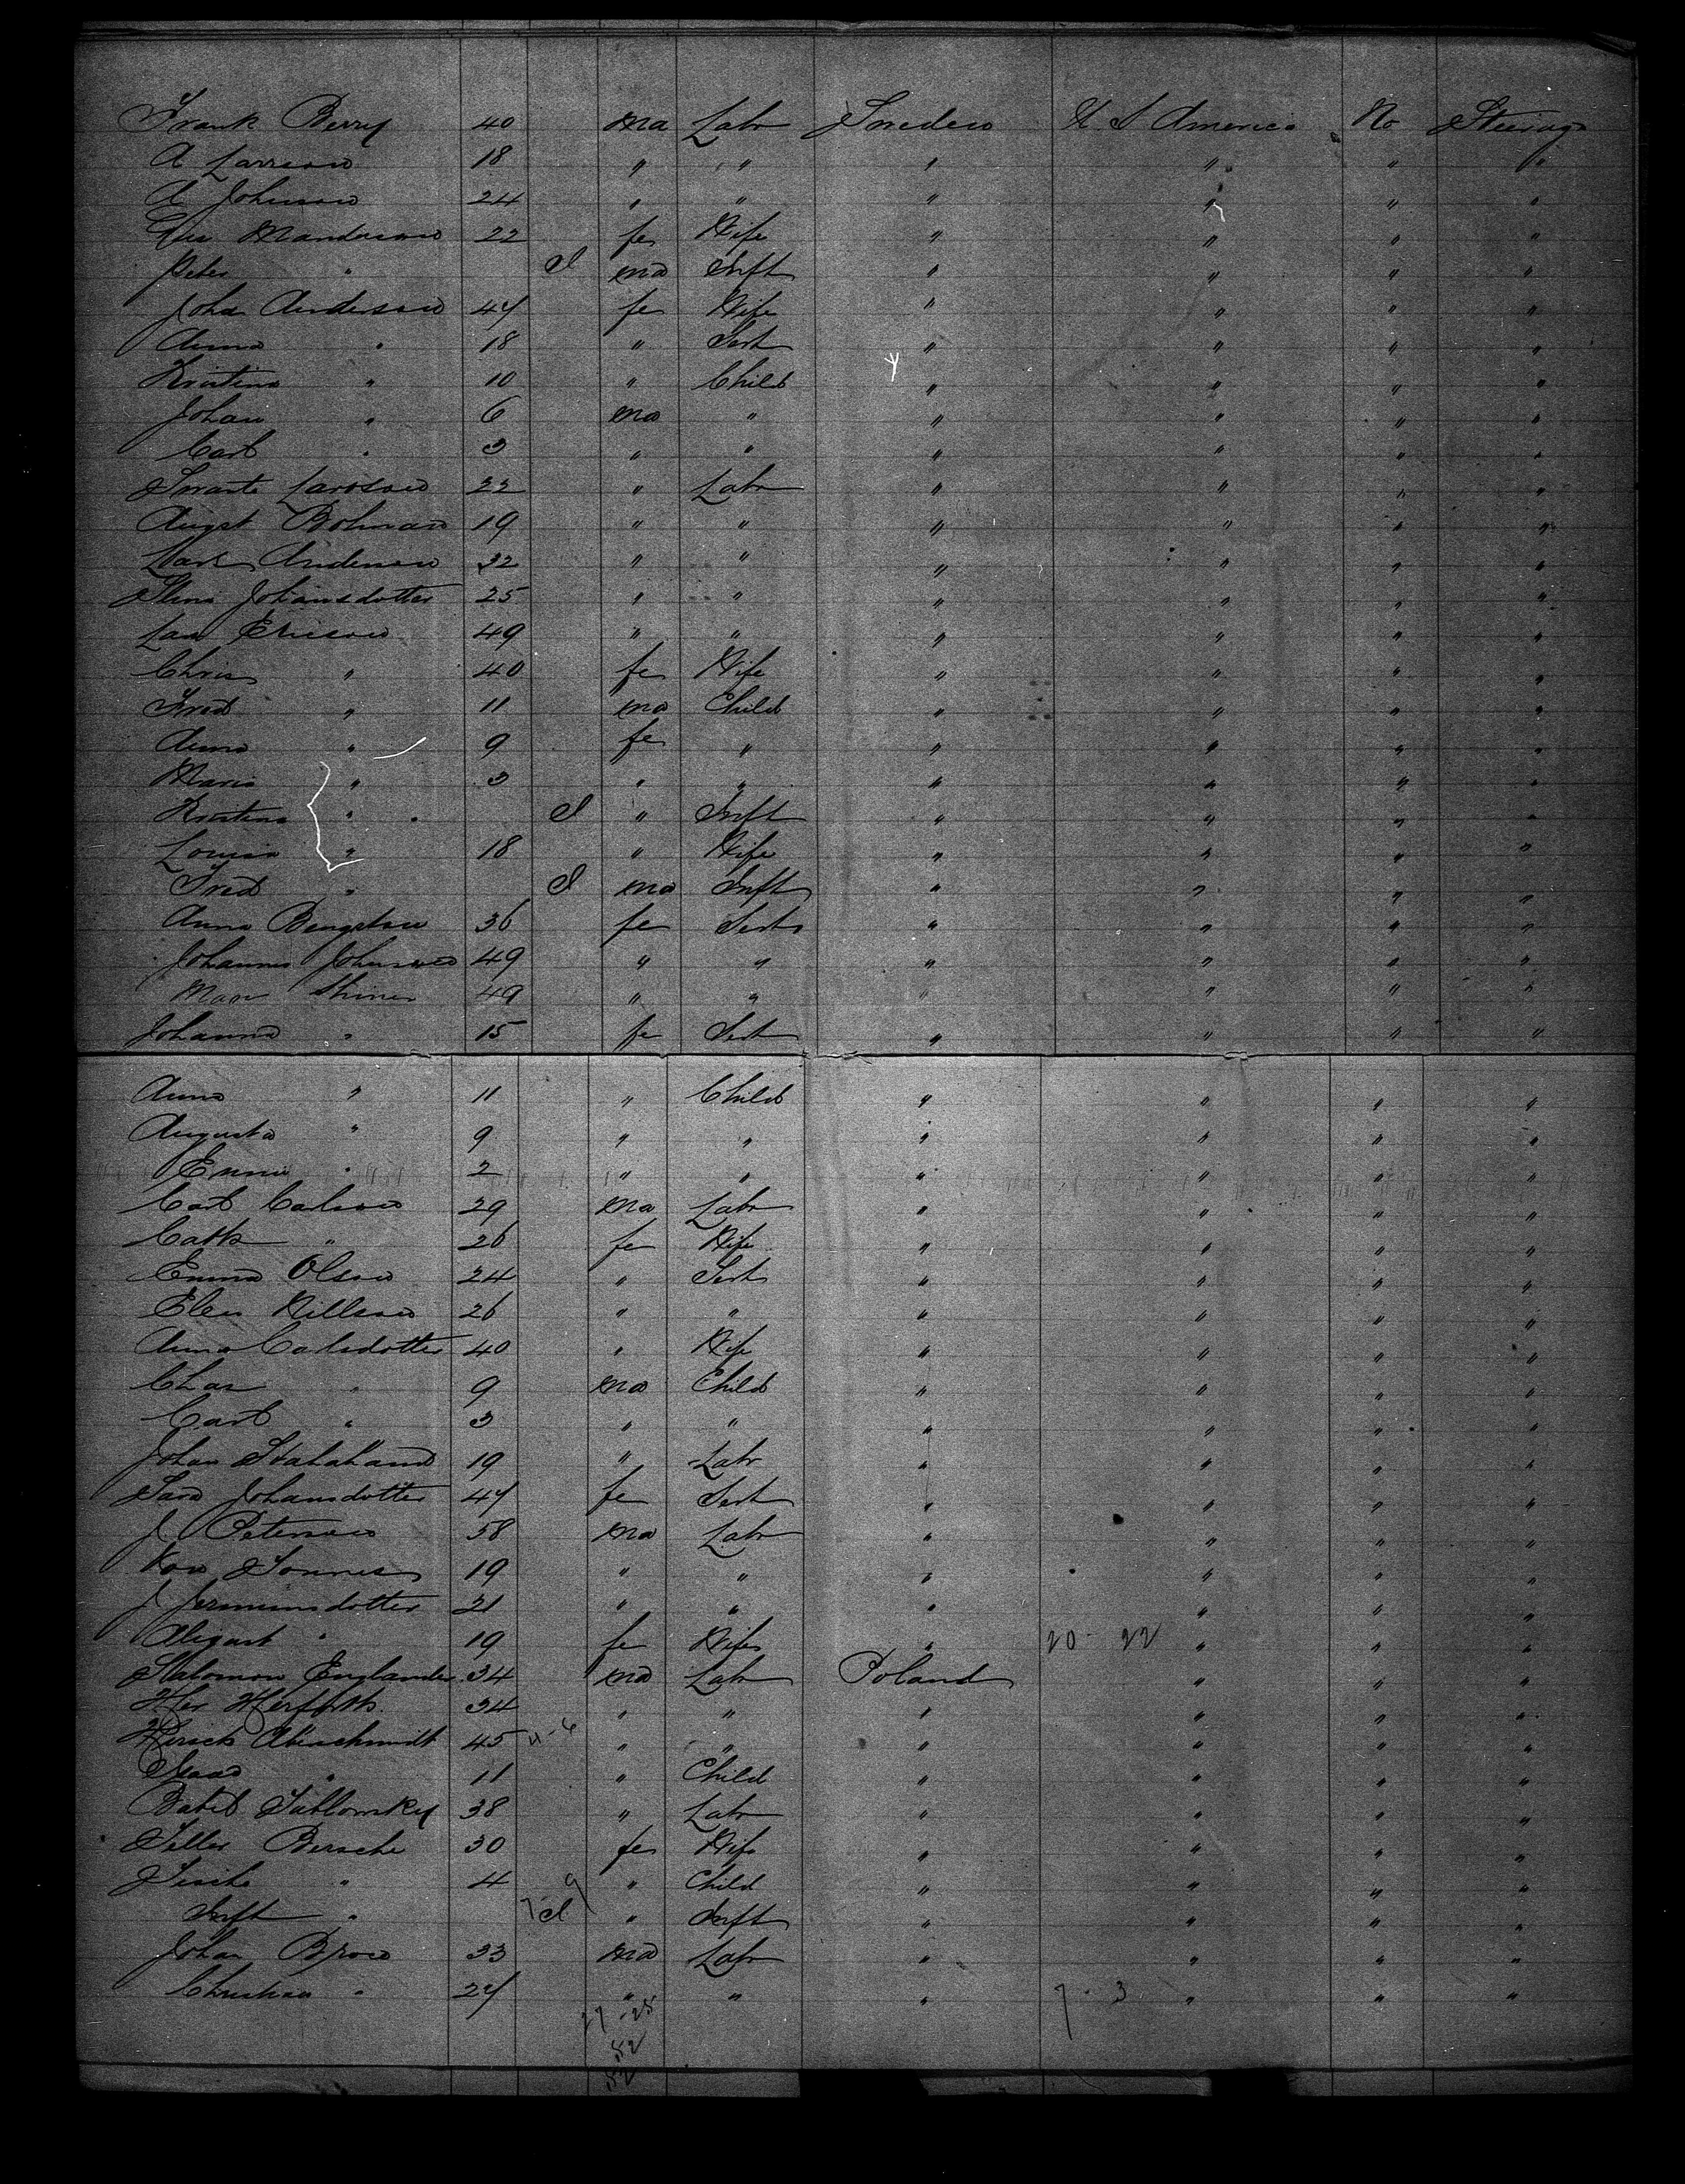 Frank Berry 40 ma Labr Sweden U S America No Steerage
A Larrson 18 " " " " " "
A Johnson 24 " " " " " "
Manderson 22 fe Wife " " " "
Peter " I ma Inft " " " "
Johan Anderson 47 fe Wife " " " "
Anna " 18 " Sert " " " "
Kristina " 10 " Child " " " "
Johan " 6 ma " " " " "
Carl " 3 " " " " " "
Swante Larsson 22 " Labr " " " "
Augst Bohman 19 " " " " " "
Carl Anderson 32 " " " " " "
Stina Johansdotter 25 " " " " " "
Lars Ericson 49 " " " " " "
Chris " 40 fe Wife " " " "
Fred " 11 ma Child " " " "
Anna " 9 fe " " " " "
Maria " 3 " " " " " "
Kristina " I " Inft " " " "
Louisa " 18 " Wife " " " "
Fred " I ma Inft " " " "
Anna Bengtson 36 fe Sert " " " "
Johannes Johnson 49 " " " " " "
49 " " " " " "
Johanna " 15 fe Sert " " " "
Anna " 11 " Child " " " "
Augusta " 9 " " " " " "
Emma " 2 " " " " " "
Carl Carlson 29 ma Labr " " " "
Cath " 26 fe Wife " " " "
Emma Olson 24 " Sert " " " "
Elen Nillson 26 " " " " " "
Anna Carlsdotter 40 " Wife " " " "
Chas " 9 ma Child " " " "
Carl " 3 " " " " " "
Johan Stahahand 19 " Labr " " " "
Sara Johansdotter 47 fe Sert " " " "
J Peterson 58 ma Labr " " " "
19 " " " " " "
J Jermunsdotter 21 " " " " " "
" 19 fe Wife " 20 - 22 " " "
Salomon Englander 34 ma Labr Poland " " "
34 " " " " " "
Hirsch Abinschmidt 45 " " " " " "
Isaac " 11 " Child " " " "
38 " Labr " " " "
30 fe Wife " " " "
" 4 " Child " " " "
Inft " I " Inft " " " "
Johan 33 ma Labr " " " "
Christian " 27 " " " 7 - 3 " " "
27 - 25
52
52